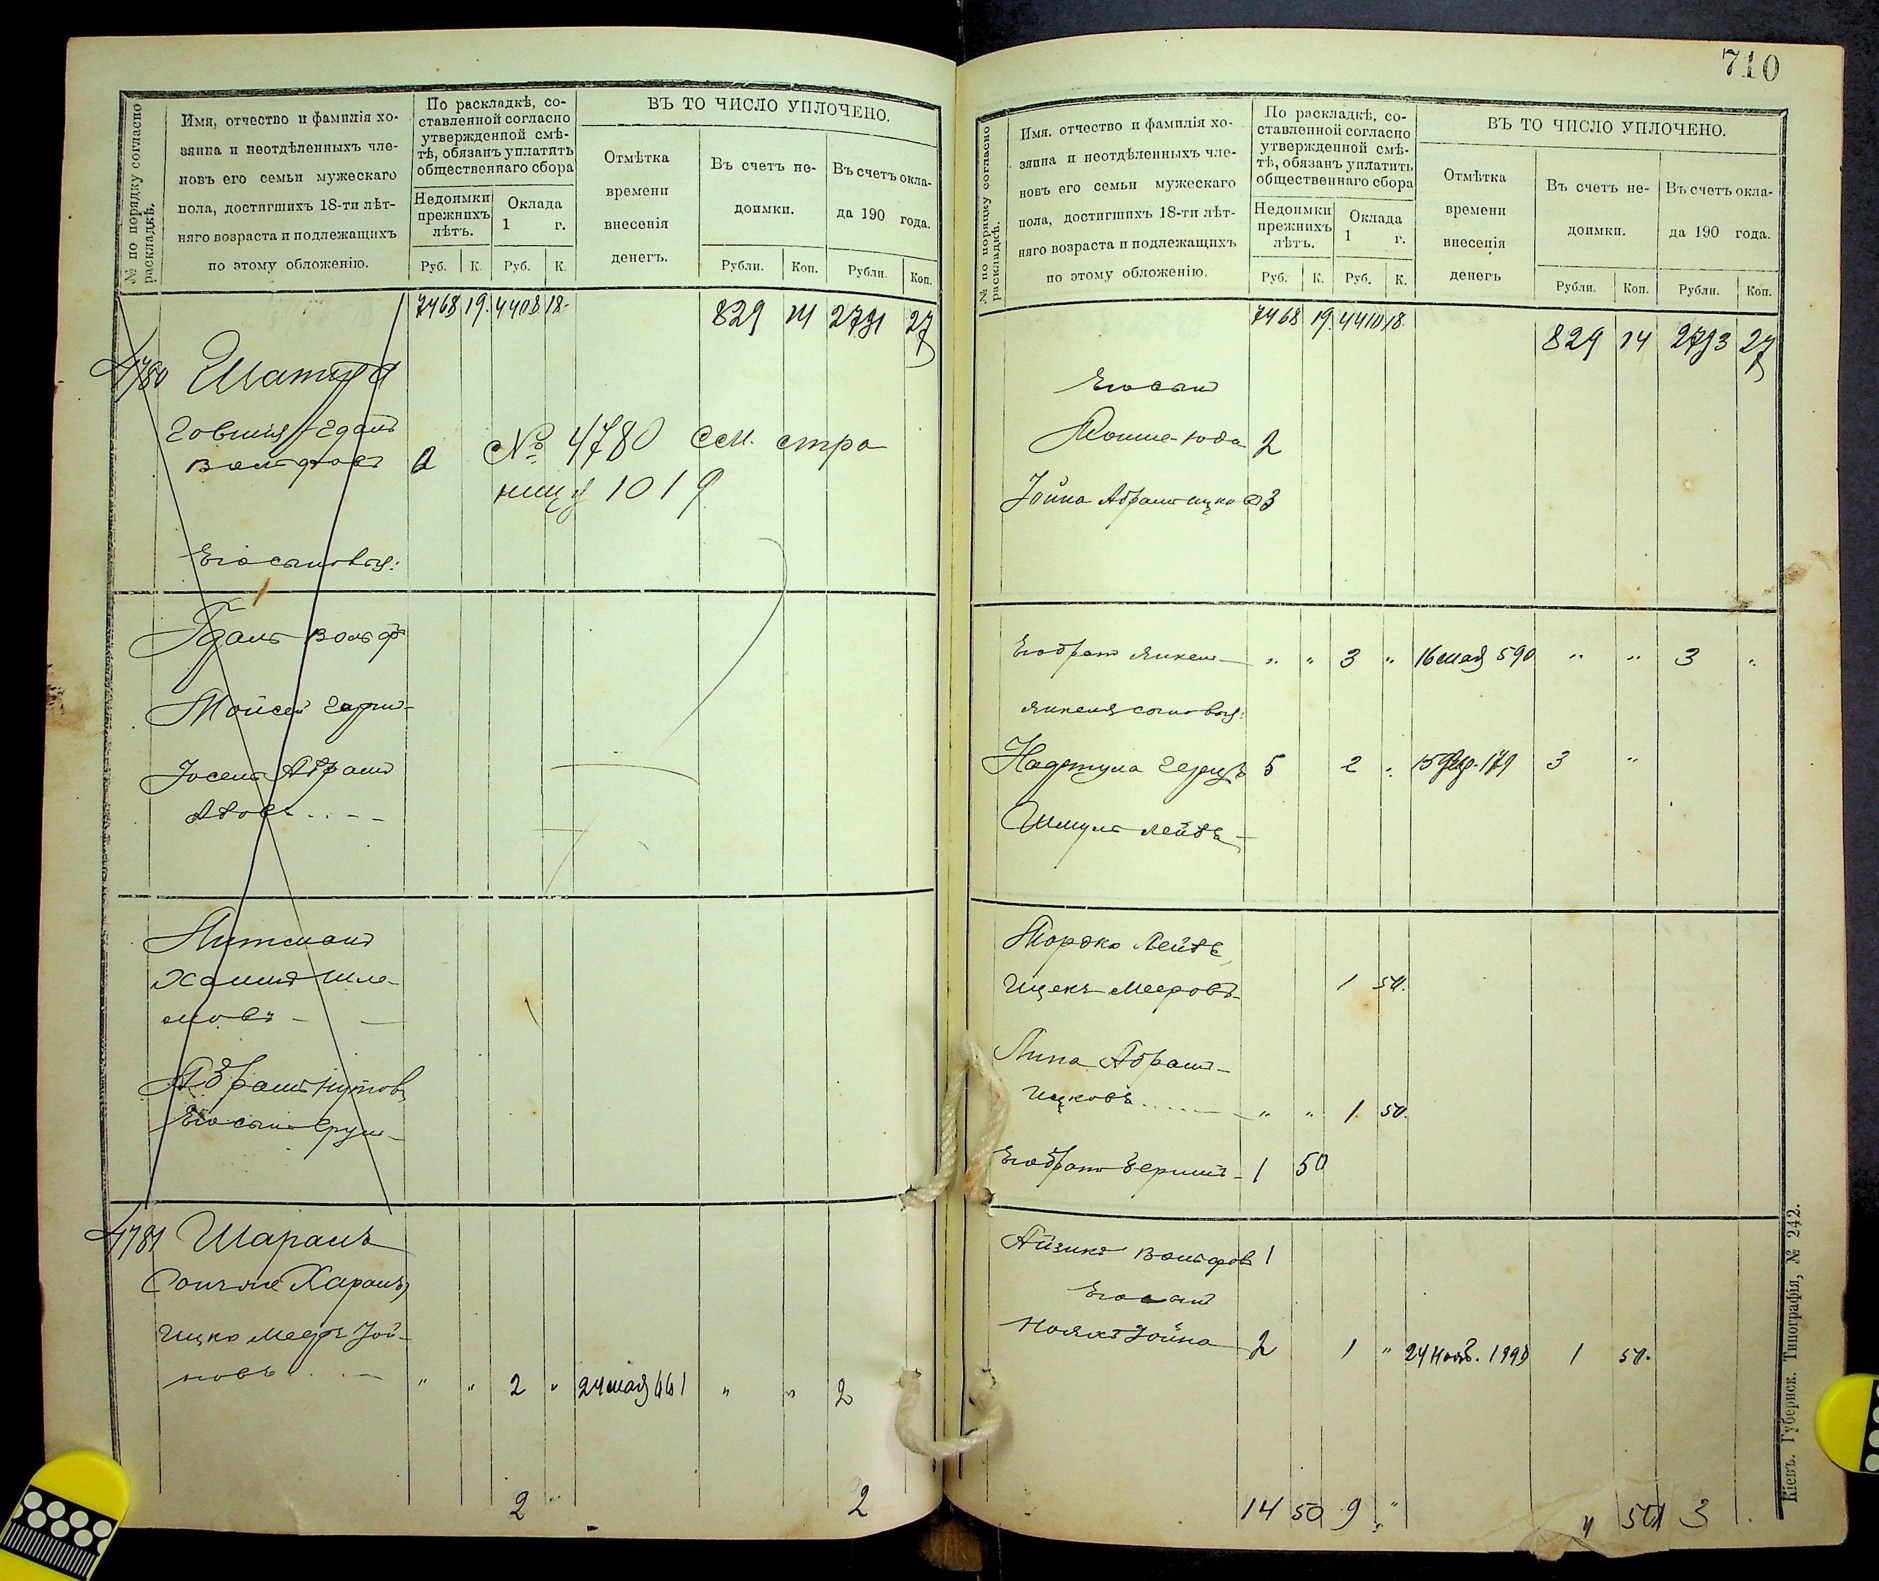 № по порядку согласно раскладкѣ.
Имя, отчество и фамилія хо-
зяина и неотдѣленныхъ чле-
новъ его семьи мужескаго
пола, достигшихъ 18-ти лѣт-
няго возраста и подлежащихъ
по этому обложенію.
По раскладкѣ, со-
ставленной согласно
утвержденной смѣ-
тѣ, обязанъ уплатить
общественнаго сбора
Недоимки
прежнихъ
лѣтъ.
Оклада
1 г.
Руб. К. Руб. К.
ВЪ ТО ЧИСЛО УПЛОЧЕНО.
Отмѣтка
времени
внесенія
денегъ.
Въ счетъ не-
доимки.
Въ счетъ окла-
да 190 года.
Рубли. Коп. Рубли. Коп.
7468 19. 4408 18. 829 14 27 27
4780
Вольфовъ 2 № 4780 см. стра
ницу 1019
Его сыновья:
Гдаль Вольф
Мойсей Герш-
Іосель Абрамъ
Литманъ
Хаимъ Шле-
мовъ -
Абрамъ
Его сынъ Сруль
4781 Шарапъ
Ицко Мееръ Іой-
новъ . . - " " 2 " 24 мая 661 " " 2
2 " 2
710
№ по порядку согласно раскладкѣ.
Имя, отчество и фамилія хо-
зяина и неотдѣленныхъ чле-
новъ его семьи мужескаго
пола, достигшихъ 18-ти лѣт-
няго возраста и подлежащихъ
по этому обложенію.
По раскладкѣ, со-
ставленной согласно
утвержденной смѣ-
тѣ, обязанъ уплатить
общественнаго сбора
Недоимки
прежнихъ
лѣтъ.
Оклада
1 г.
Руб. К. Руб. К.
ВЪ ТО ЧИСЛО УПЛОЧЕНО.
Отмѣтка
времени
внесенія
денегъ
Въ счетъ не-
доимки.
Въ счетъ окла-
да 190 года.
Рубли. Коп. Рубли. Коп.
7468 19. 4410 18. 829 14 27 27
Его сынъ
Мошко-Юда 2
Іойна Абрамъ Ицков 3
Его братъ Янкель - " " 3 " 16 мая 590 " " 3 "
Янкеля сыновья:
Герцъ 5 2 " 15 3 "
Шмуль Лейбъ -
Мордко Лейбъ
Ицекъ Мееровъ - 1 50.
Липа Абрамъ-
Ицковъ . . . . " " 1 50.
Его братъ Бериш - 1 50
Айзикъ Вольфов 1
Его сынъ
Іойна 2 1 " 24 Нояб. 1 50.
14 50 9 " " 50 3
Кіевъ. Губернск. Типографія, № 242.